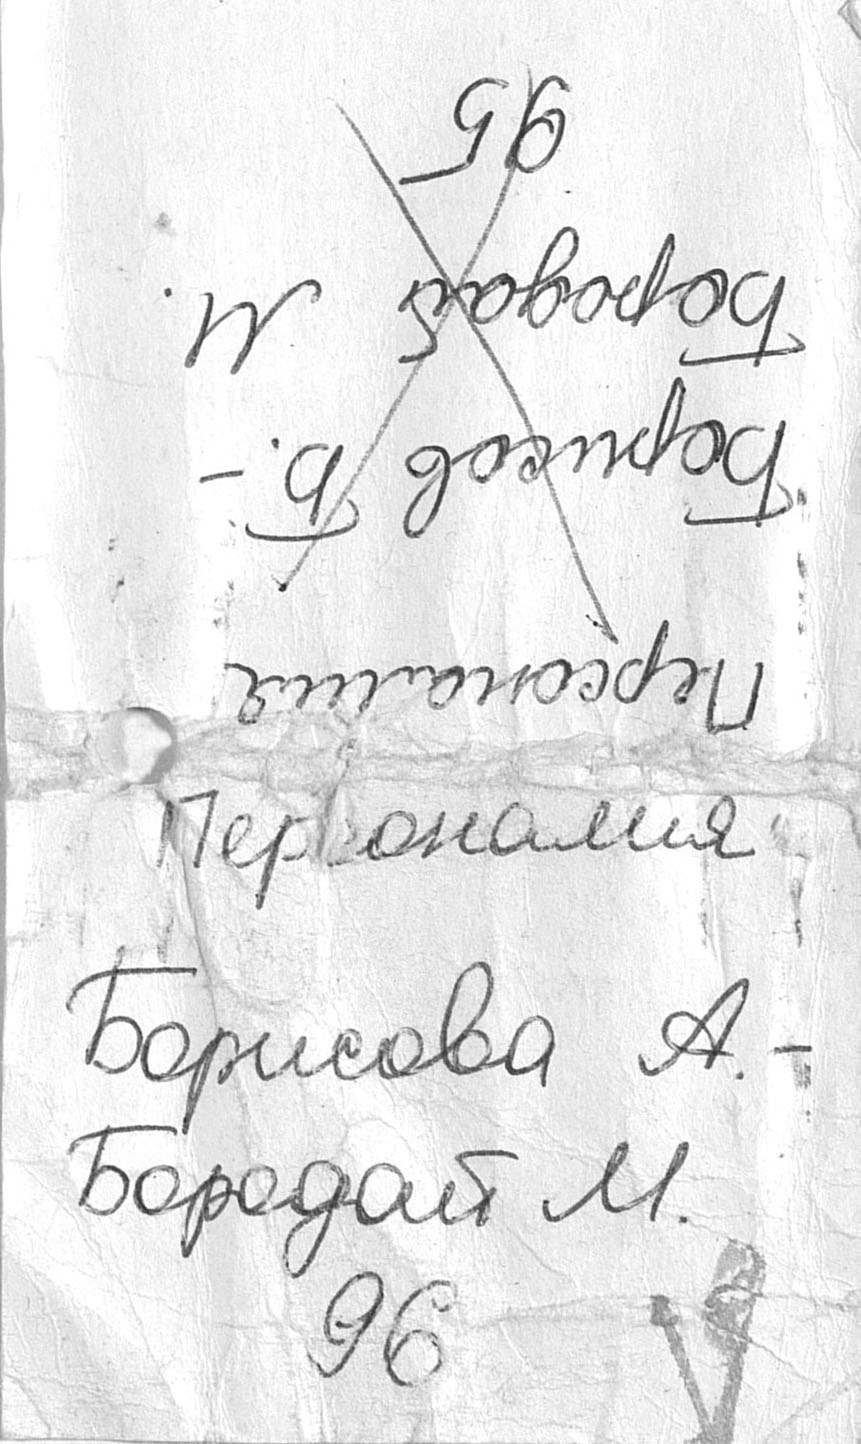 Персоналия
Борисов Б. -
Бородай М.
95
Персоналия
Борисова А. -
Бородай М.
96